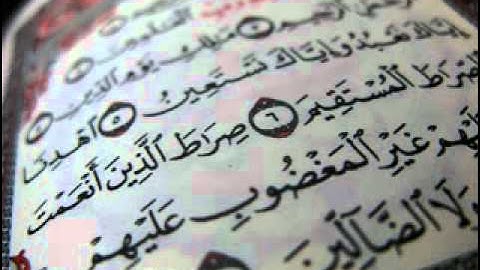 ٱلرَّحْمَٰنِ ٱلرَّحِيمِ ٣ مَٰلِكِ يَوْمِ ٱلدِّينِ ٤
إِيَّاكَ نَعْبُدُ وَإِيَّاكَ نَسْتَعِينُ ٥ ٱهْدِنَا
ٱلصِّرَٰطَ ٱلْمُسْتَقِيمَ ٦ صِرَٰطَ ٱلَّذِينَ أَنْعَمْتَ
عَلَيْهِمْ غَيْرِ ٱلْمَغْضُوبِ عَلَيْهِمْ
وَلَا ٱلضَّآلِّينَ